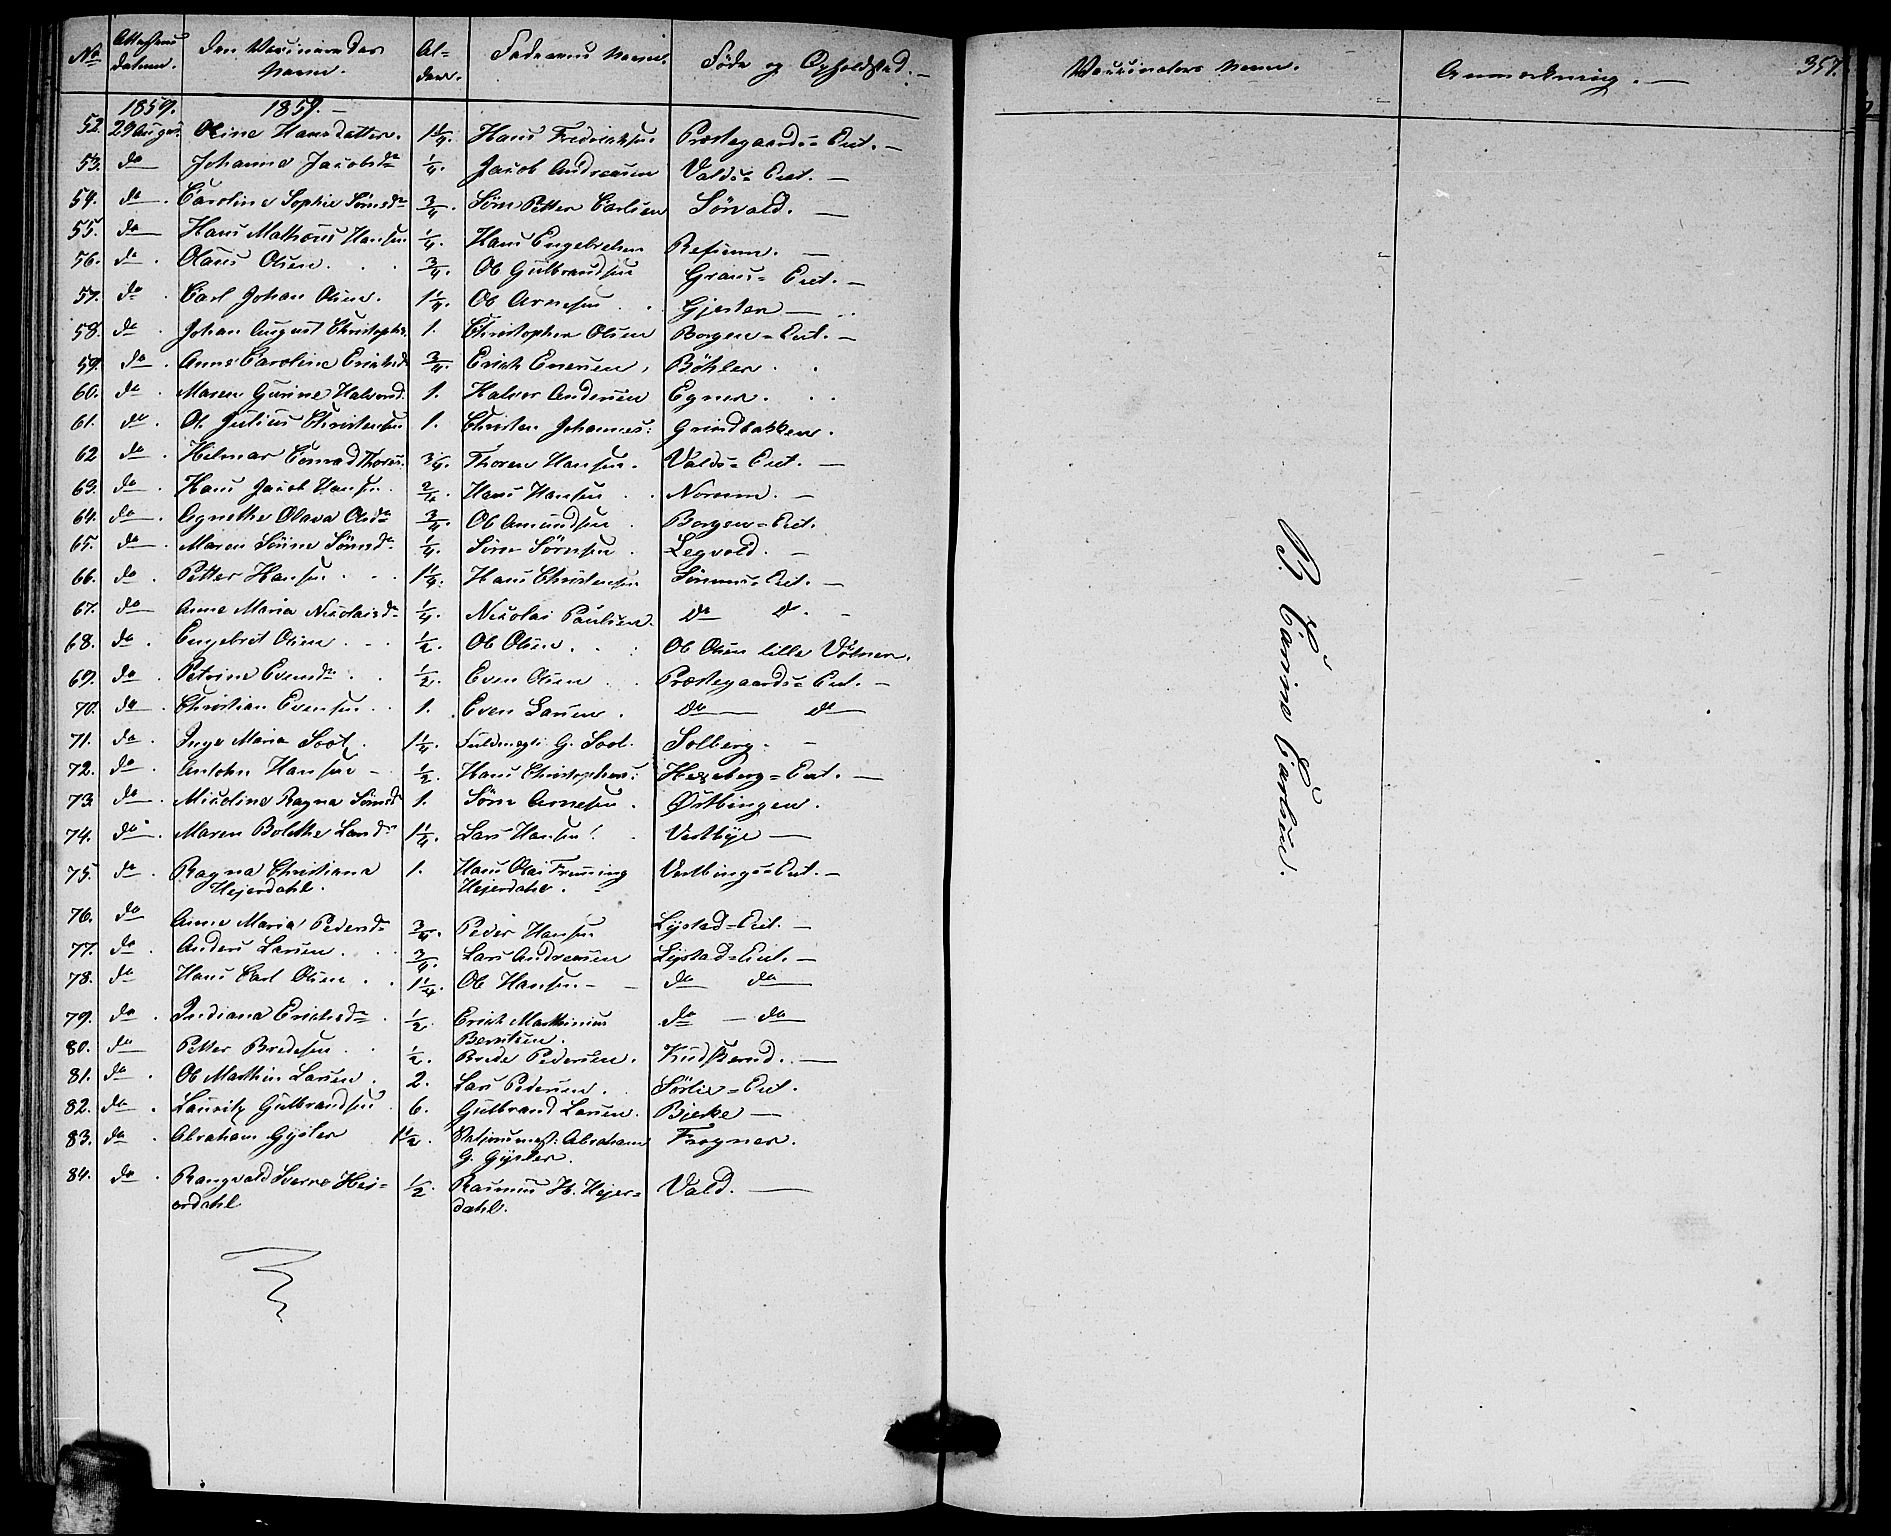 No Attestens datum. Den Vaccineredes Navn. Alder. Faderens Navn. Føde og Opholdsted.
Vaccinateurs Navn. Anmærkning. 357.
1859. 1859.
52. 29 August Oline Hansdatter. 1 1/4. Hans Fredriksen Præstegaards=Eiet.
53. do Johanne Jacobsdr 1/4. Jacob Andreasen Valds=Eiet.
54. do Caroline Sophie Sørensdr 3/4. Sørn Petter Carlsen Sørvald.
55. do Hans Mathæus Hansen 1/4. Hans Engebretsen Refsum.
56. do Olaus Olsen 3/4. Ole Gulbrandsen Graus=Eiet.
57. do Carl Johan Olsen. 1 1/4. Ole Arnesen Gjesten
58. do Johan August Christophs. 1. Christopher Olsen Borgen=Eiet.
59. do Anne Caroline Ericksdr 3/4. Erick Evensen, Böhler.
60. do Maren Gurine Halvorsd. 1. Halvor Andersen Egner.
61. do Ole Julius Christensen 1. Christen Johannes: Grindbakken.
62 do Helmar Conrad Thores. 3/4. Thoren Hansen. Valds=Eiet.
63. do Hans Jacob Hansen. 2/4. Hans Hansen Norum.
64. do Agnethe Olava Olsdr 3/4. Ole Amundsen Borgen=Eiet.
65. do Maren Sørine Sørensdr 1/4. Sørn Sørensen Legvold.
66. do Petter Hansen 1 1/4. Hans Christensen Sörums=Eiet.
67. do Anne Maria Nicolaisdr 1/4. Nicolai Paulsen. do do.
68. do Engebret Olsen 1/2. Ole Olsen. Ole Olsen lille Vølner.
69. do Petrine Evensdr 1/2. Even Olsen Præstegaards=Eiet.
70. do Christian Evensen 1. Even Larsen. do do
71. do Inga Maria Soot. 1 1/4. Fuldmægti G. Soot. Solberg.
72. do Anton Hansen 1/2. Hans Christophers: Hexeberg=Eiet.
73. do Nicoline Ragna Sørnsd 1. Sørn Arnesen. Østbingen.
74. do Maren Bolethe Larsdr 1 1/4. Lars Hansen! Vestbye
75. do Ragna Christiane Hejerdahl. 1. Hans Olai Fremming Hejerdahl. Vestbings=Eiet.
76. do Anne Maria Pedersdr 3/4. Peder Hansen Lystad=Eiet.
77. do Anders Larsen 3/4. Lars Andreasen Lystad=Eiet.
78. do Hans Carl Olsen 1 1/4. Ole Hansen do do
79. do Indiana Ericksdr 1/2. Erick Marthinius Berntsen. do do
80. do Petter Bredesen 1/2. Brede Pedersen. Kudsrud.
81. do Ole Marthin Larsen 2. Lars Pedersen. Sörlie=Eiet.
82. do Lauritz Gulbrandsen 6. Gulbrand Larsen. Bjerke
83. do Abraham Gysler 1 1/2. Stationsmest: Abraham G. Gysler. Frogner.
84. do Rangvald Sverre Hejerdahl 1/2 Rasmus H. Hejerdahl. Vald.
B. Carine Carlsen.